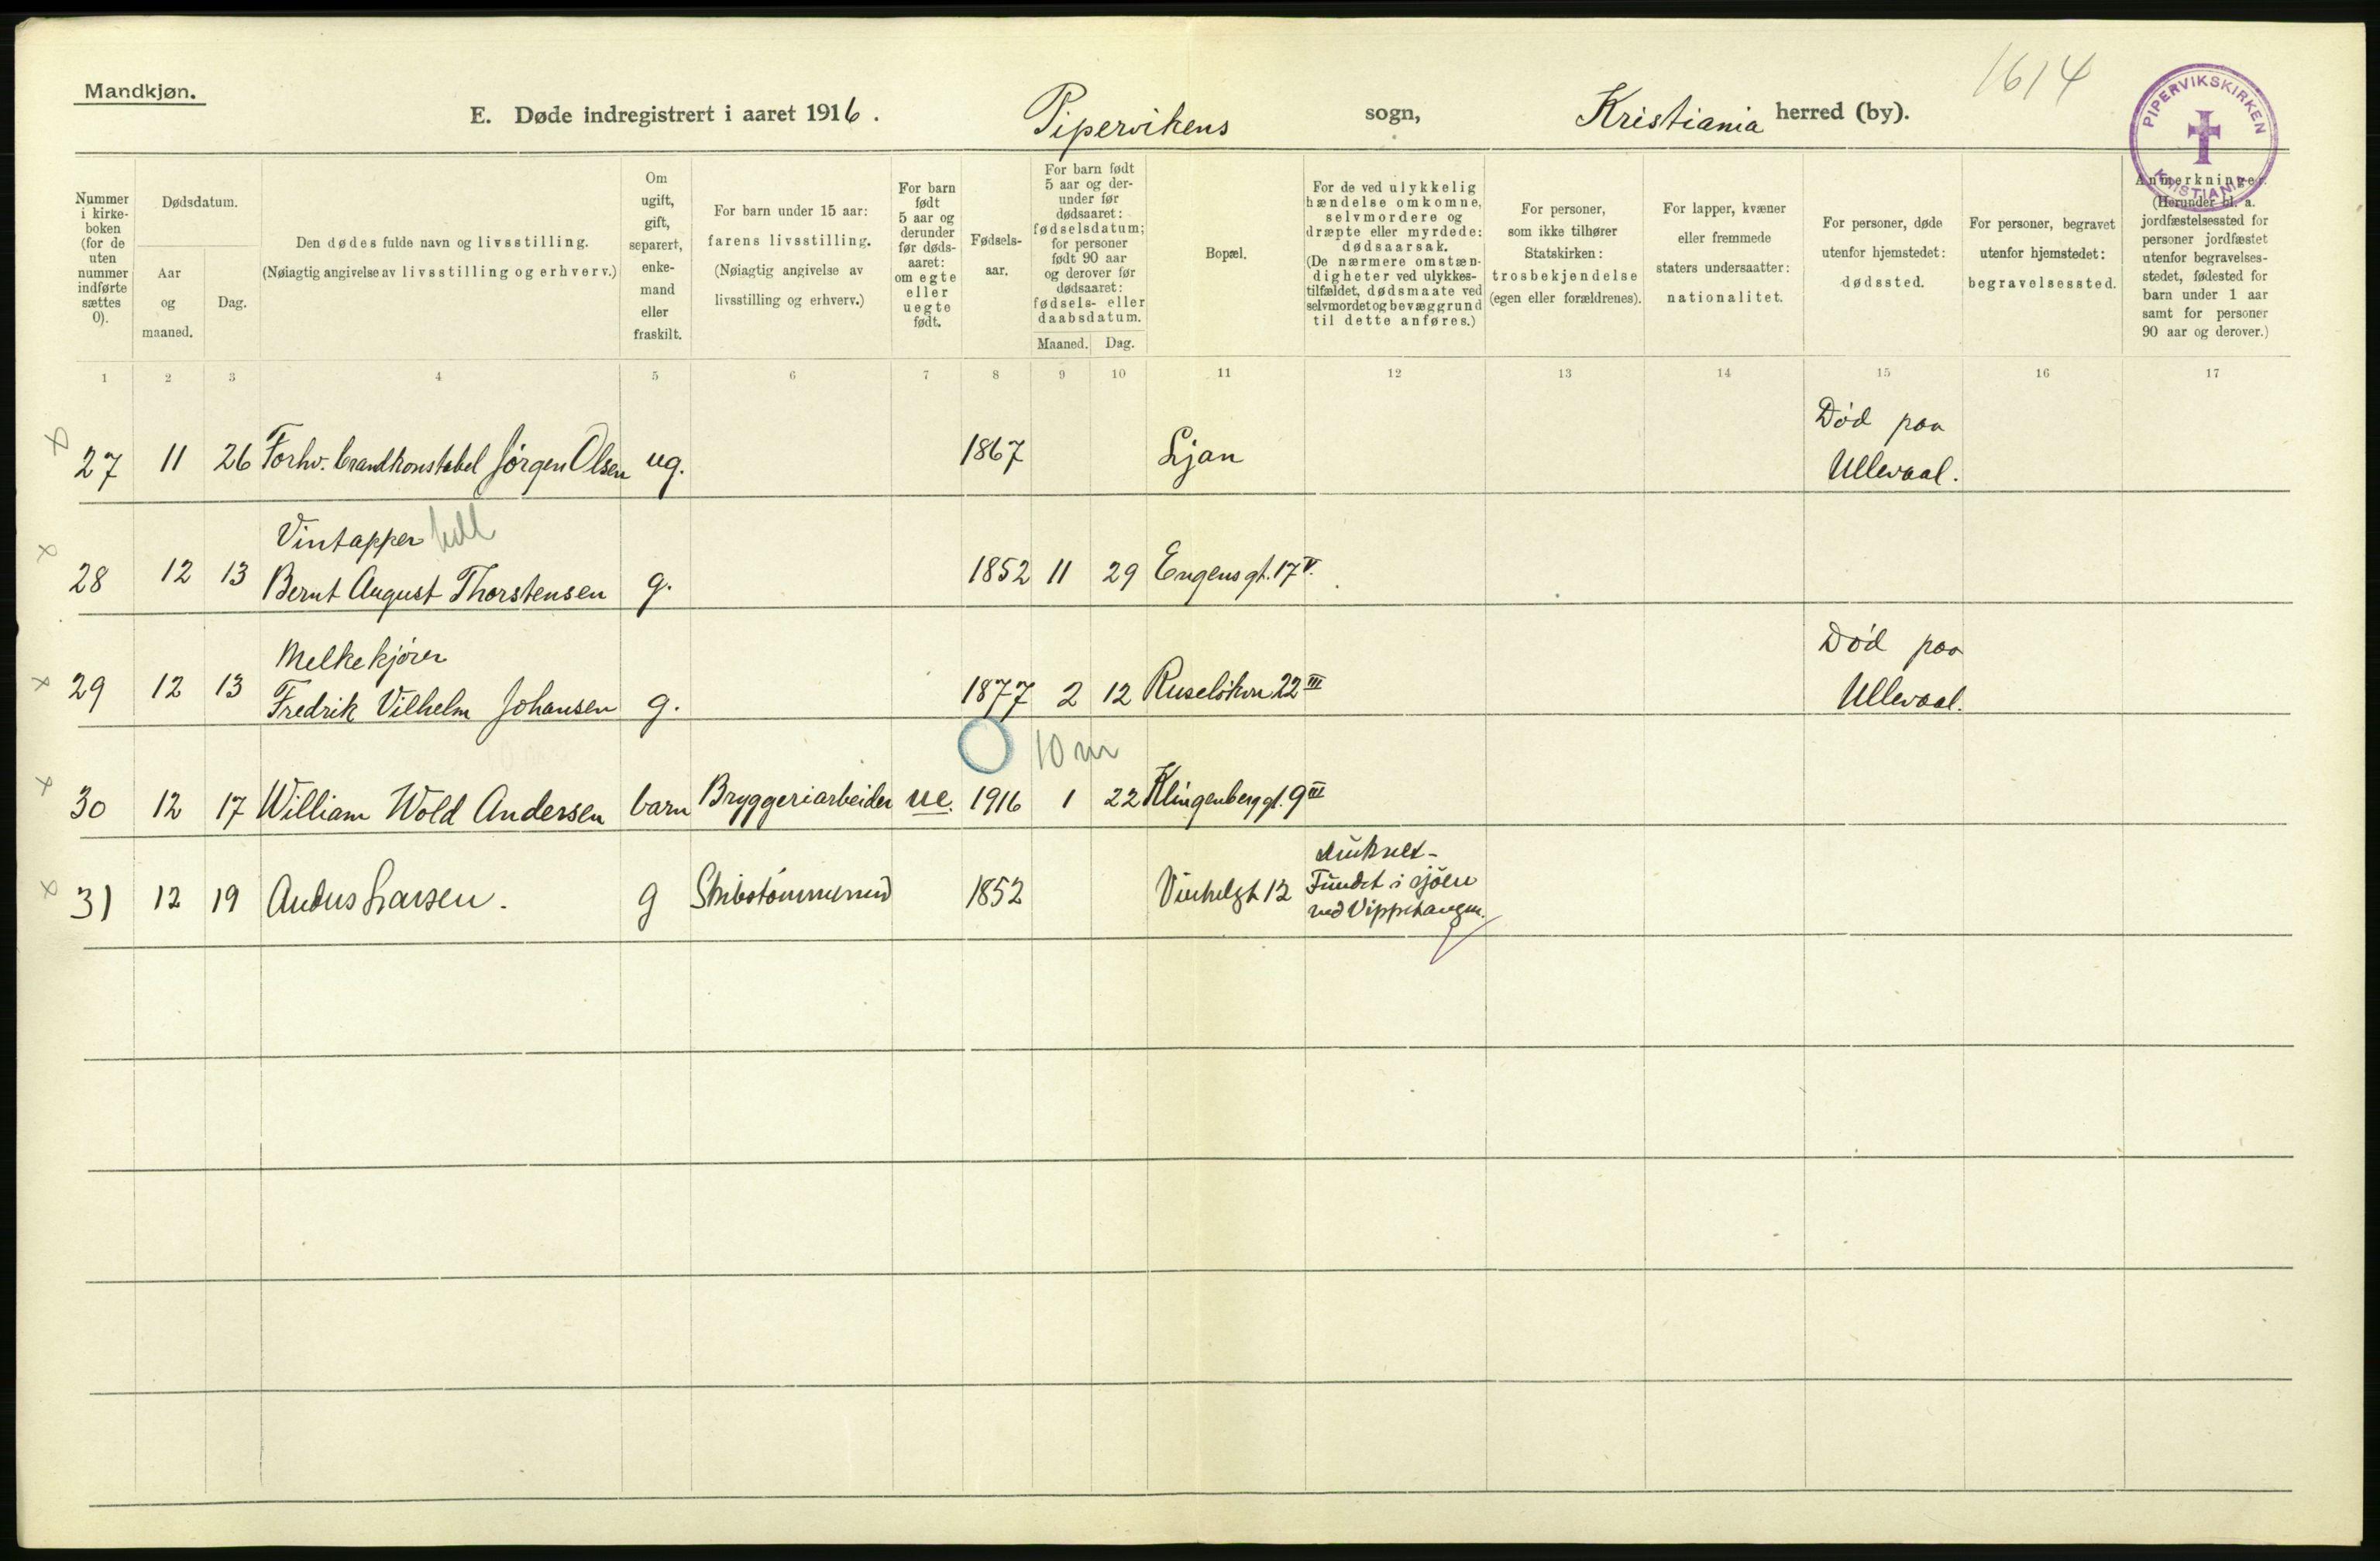 Mandkjøn.
E. Døde indregistrert i aaret 1916. Pipervikens sogn, Kristiania herred (by).
1614
PIPERVIKSKIRKEN
KRISTIANIA
Nummer
i kirke-
boken
(for de
uten
nummer
indførte
sættes
0).
Dødsdatum.
Aar
og
maaned.
Dag.
Den dødes fulde navn og livsstilling.
(Nøiagtig angivelse av livsstilling og erhverv.)
Om
ugift,
gift,
separert,
enke-
mand
eller
fraskilt.
For barn under 15 aar:
farens livsstilling.
(Nøiagtig angivelse av
livsstilling og erhverv.)
For barn
født
5 aar og
derunder
før døds-
aaret:
om egte
eller
uegte
født.
Fødsels-
aar.
For barn født
5 aar og der-
under før
dødsaaret:
fødselsdatum;
for personer
født 90 aar
og derover før
dødsaaret:
fødsels- eller
daabsdatum.
Maaned. Dag.
Bopæl.
For de ved ulykkelig
hændelse omkomne,
selvmordere og
dræpte eller myrdede:
dødsaarsak.
(De nærmere omstæn-
digheter ved ulykkes-
tilfældet, dødsmaate ved
selvmordet og bevæggrund
til dette anføres.)
For personer,
som ikke tilhører
Statskirken:
trosbekjendelse
(egen eller forældrenes).
For lapper, kvæner
eller fremmede
staters undersaatter:
nationalitet.
For personer, døde
utenfor hjemstedet:
dødssted.
For personer, begravet
utenfor hjemstedet:
begravelsessted.
Anmerkninger.
(Herunder bl. a.
jordfæstelsessted for
personer jordfæstet
utenfor begravelses-
stedet, fødested for
barn under 1 aar
samt for personer
90 aar og derover.)
1 2 3 4 5 6 7 8 9 10 11 12 13 14 15 16 17
Død paa
27 11 26 Forhv. brandkonstabel Jørgen Olsen ug. 1867 Ljan Ullevaal.
Vintapper
28 12 13 Bernt August Thorstensen g. 1852 11 29 Engensgt. 17 V.
Melkekjører Død paa
29 12 13 Fredrik Vilhelm Johansen g. 1877 2 12 Ruseløkvn 22 III Ullevaal.
10 m
30 12 17 William Wold Andersen barn Bryggeriarbeider ue. 1916 1 22 Klingenberggt. 9 III
druknet-
31 12 19 Anders Larsen. g Skibstømmermd 1852 Vinkelgt 12 Fundet i sjøen
ved Vippetangen.